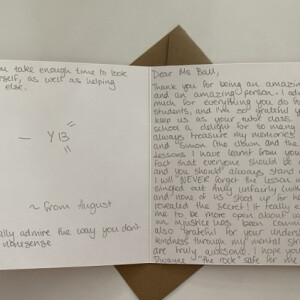 ou take enough time to look
rself, as well as helping
else.
Y13
~ from August
ally admire the way you don't
nonsense
Dear Ms Ball,
Thank you for being an amazing
and an amazing person. I ad
much for everything you do fo
students, and I'm so grateful y
keep us as your tutor class.
school a delight for so many
always treasure my memories
and Simon the album and the
lessons I have learnt from your
fact that everyone should be
and you should always stand
I will NEVER forget the lesson w
singled out fully unfairly
and none of us stood up for he
revealed the secret! It really
me to be more open about w
an injustice has been comm
also grateful for your unders
kindness through my mental str
are truly awesome. I hope you
Dwayne "the rock" safe for me